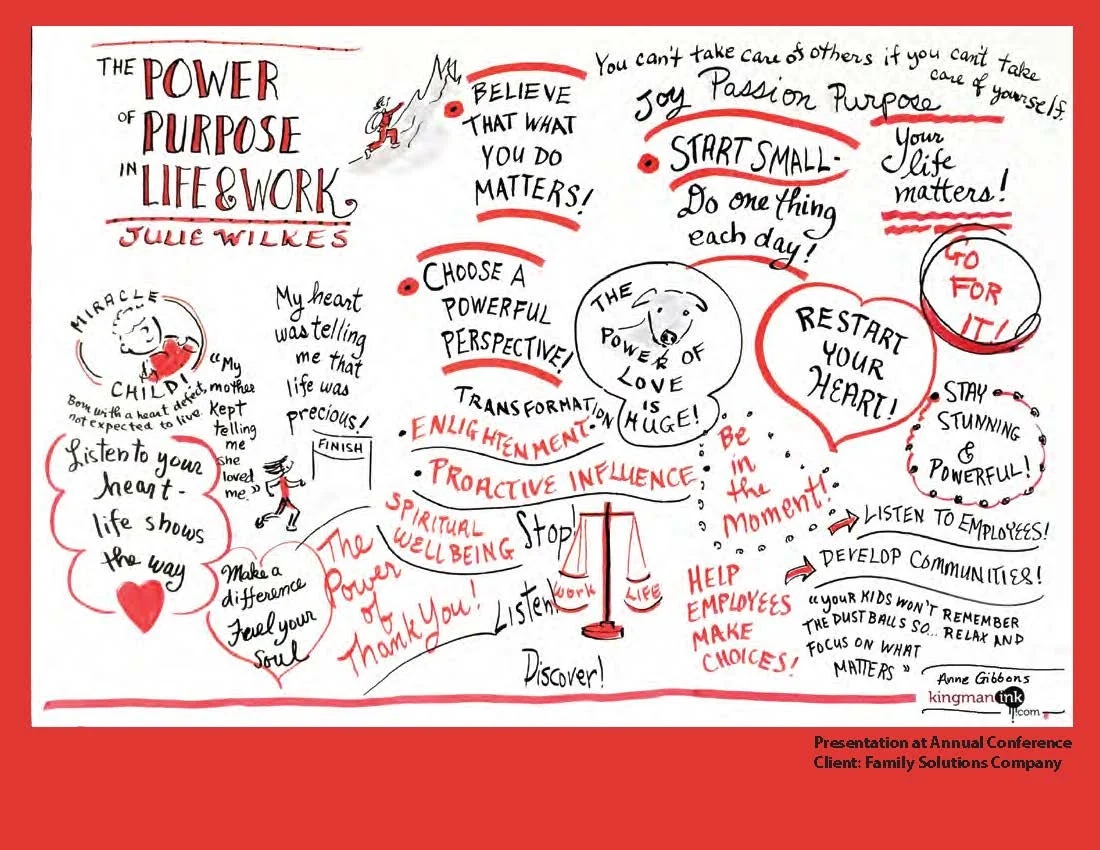 THE POWER
OF PURPOSE
IN LIFE & WORK
JULIE WILKES
BELIEVE
THAT WHAT
YOU DO
MATTERS!
You can't take care of others if you can't take
care of yourself.
Joy Passion Purpose
START SMALL-
Do one thing
each day!
Your
life
matters!
GO
FOR
IT!
MIRACLE
CHILD!
Born with a heart defect,
not expected to live.
"My
mother
kept
telling
me
she
loved
me."
My heart
was telling
me that
life was
precious!
FINISH
CHOOSE A
POWERFUL
PERSPECTIVE!
THE
POWER OF
LOVE
IS
HUGE!
RESTART
YOUR
HEART!
STAY
STUNNING
&
POWERFUL!
Listen to your
heart-
life shows
the way
Make a
difference
Fuel your
Soul
The
Power
of
Thank You!
TRANSFORMATION
• ENLIGHTENMENT
• PROACTIVE INFLUENCE
SPIRITUAL
WELLBEING
Stop!
Listen!
Discover!
WORK
LIFE
Be
in
the
moment!
HELP
EMPLOYEES
MAKE
CHOICES!
LISTEN TO EMPLOYEES!
DEVELOP COMMUNITIES!
"YOUR KIDS WON'T REMEMBER
THE DUST BALLS SO... RELAX AND
FOCUS ON WHAT
MATTERS"
Anne Gibbons
kingmanink
.com
Presentation at Annual Conference
Client: Family Solutions Company